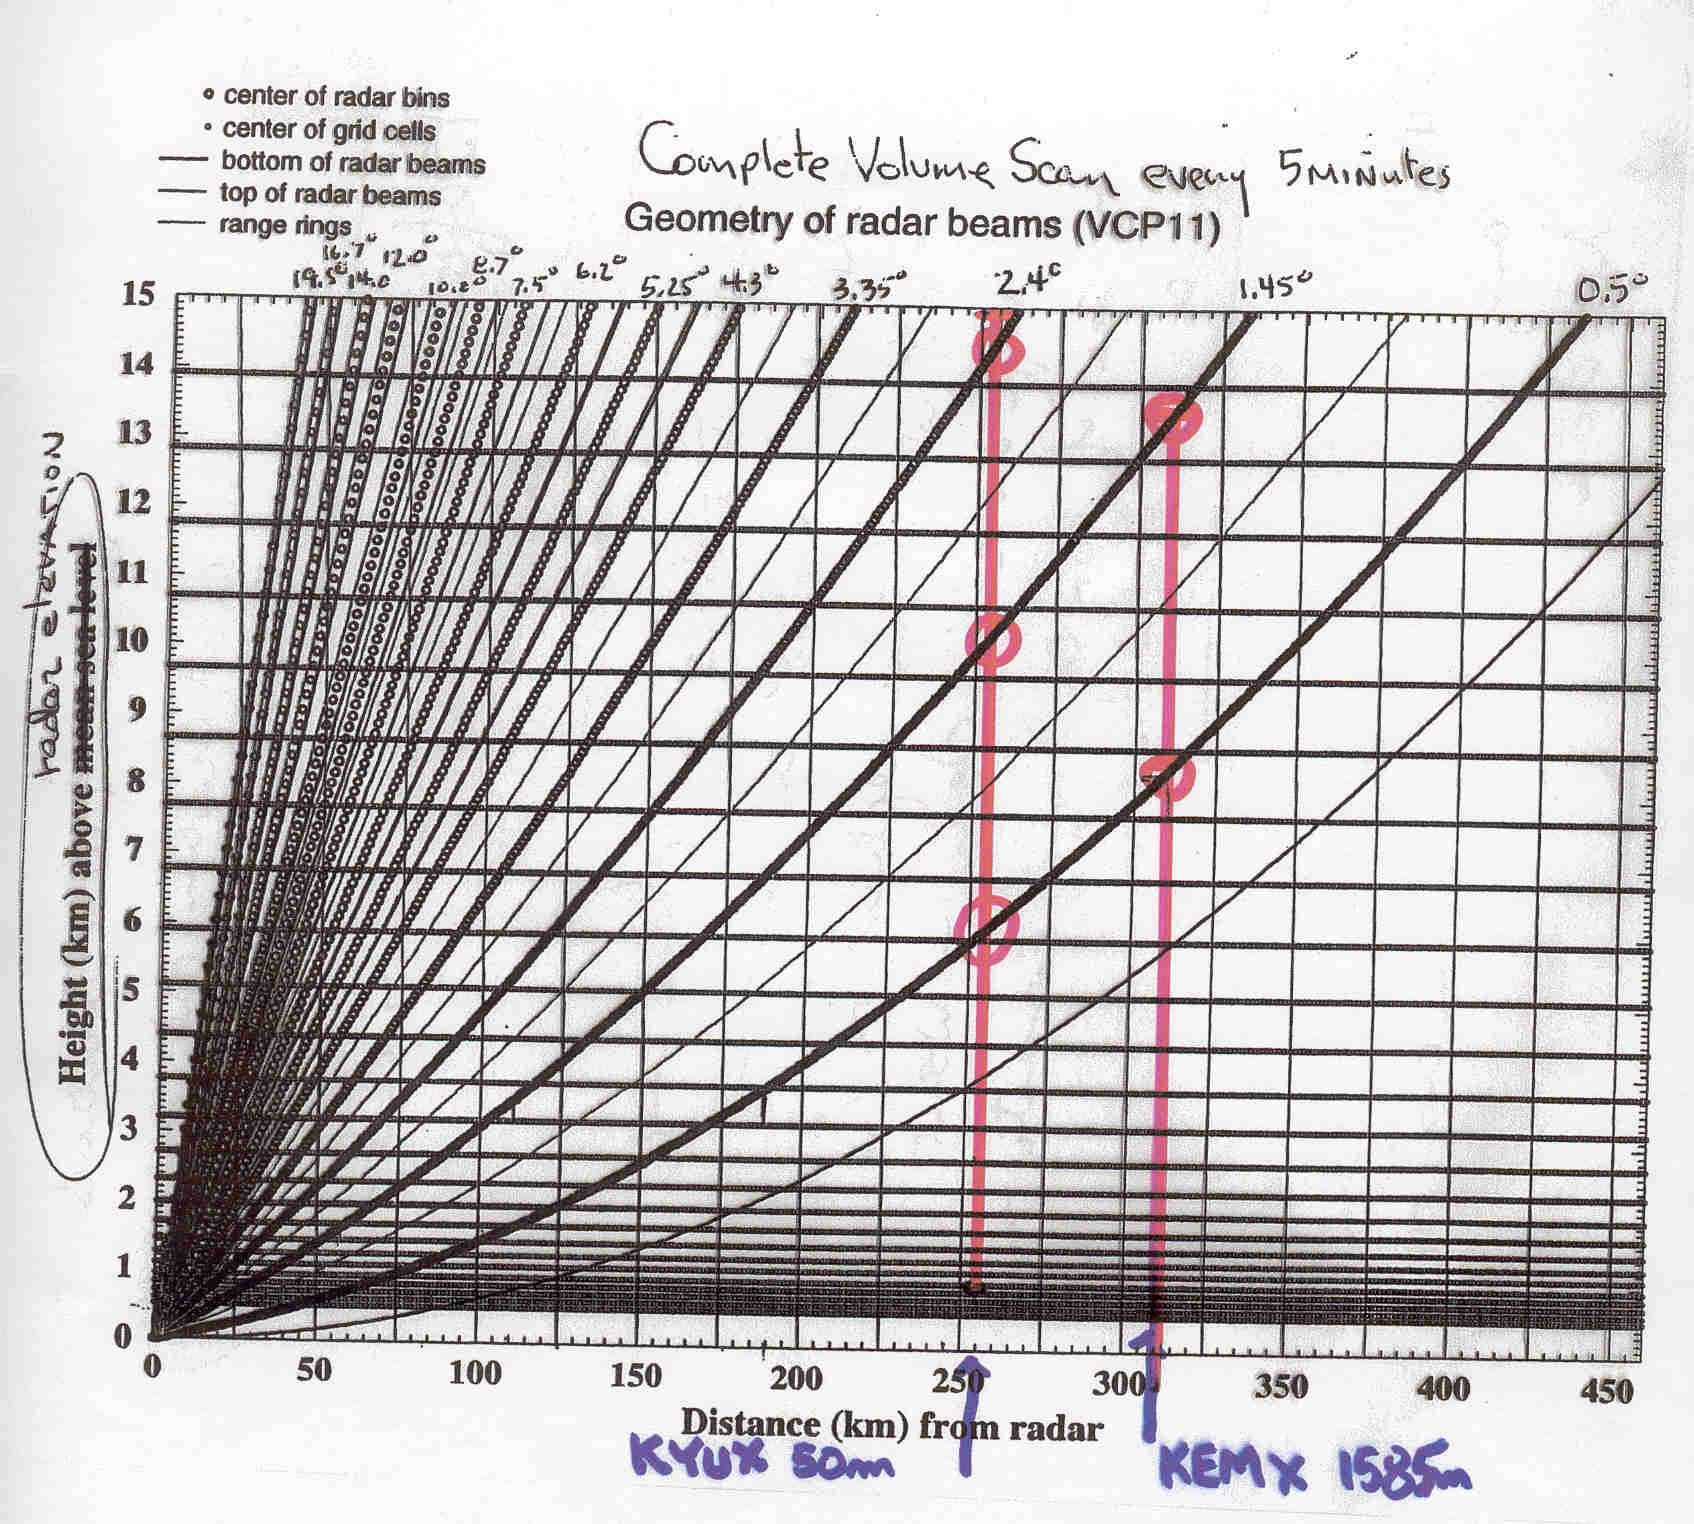 center of radar bins
center of grid cells
bottom of radar beams
top of radar beams
range rings
Complete Volume Scan every 5 Minutes
Geometry of radar beams (VCP11)
19.5° 16.7° 14.0 12.0° 10.0° 8.7° 7.5° 6.2° 5.25° 4.3° 3.35° 2.4° 1.45° 0.5°
15
14
13
12
11
10
9
8
7
6
5
4
3
2
1
0
radar elevation
Height (km) above mean sea level
0 50 100 150 200 250 300 350 400 450
Distance (km) from radar
KYUX 50m
KEMX 1585m